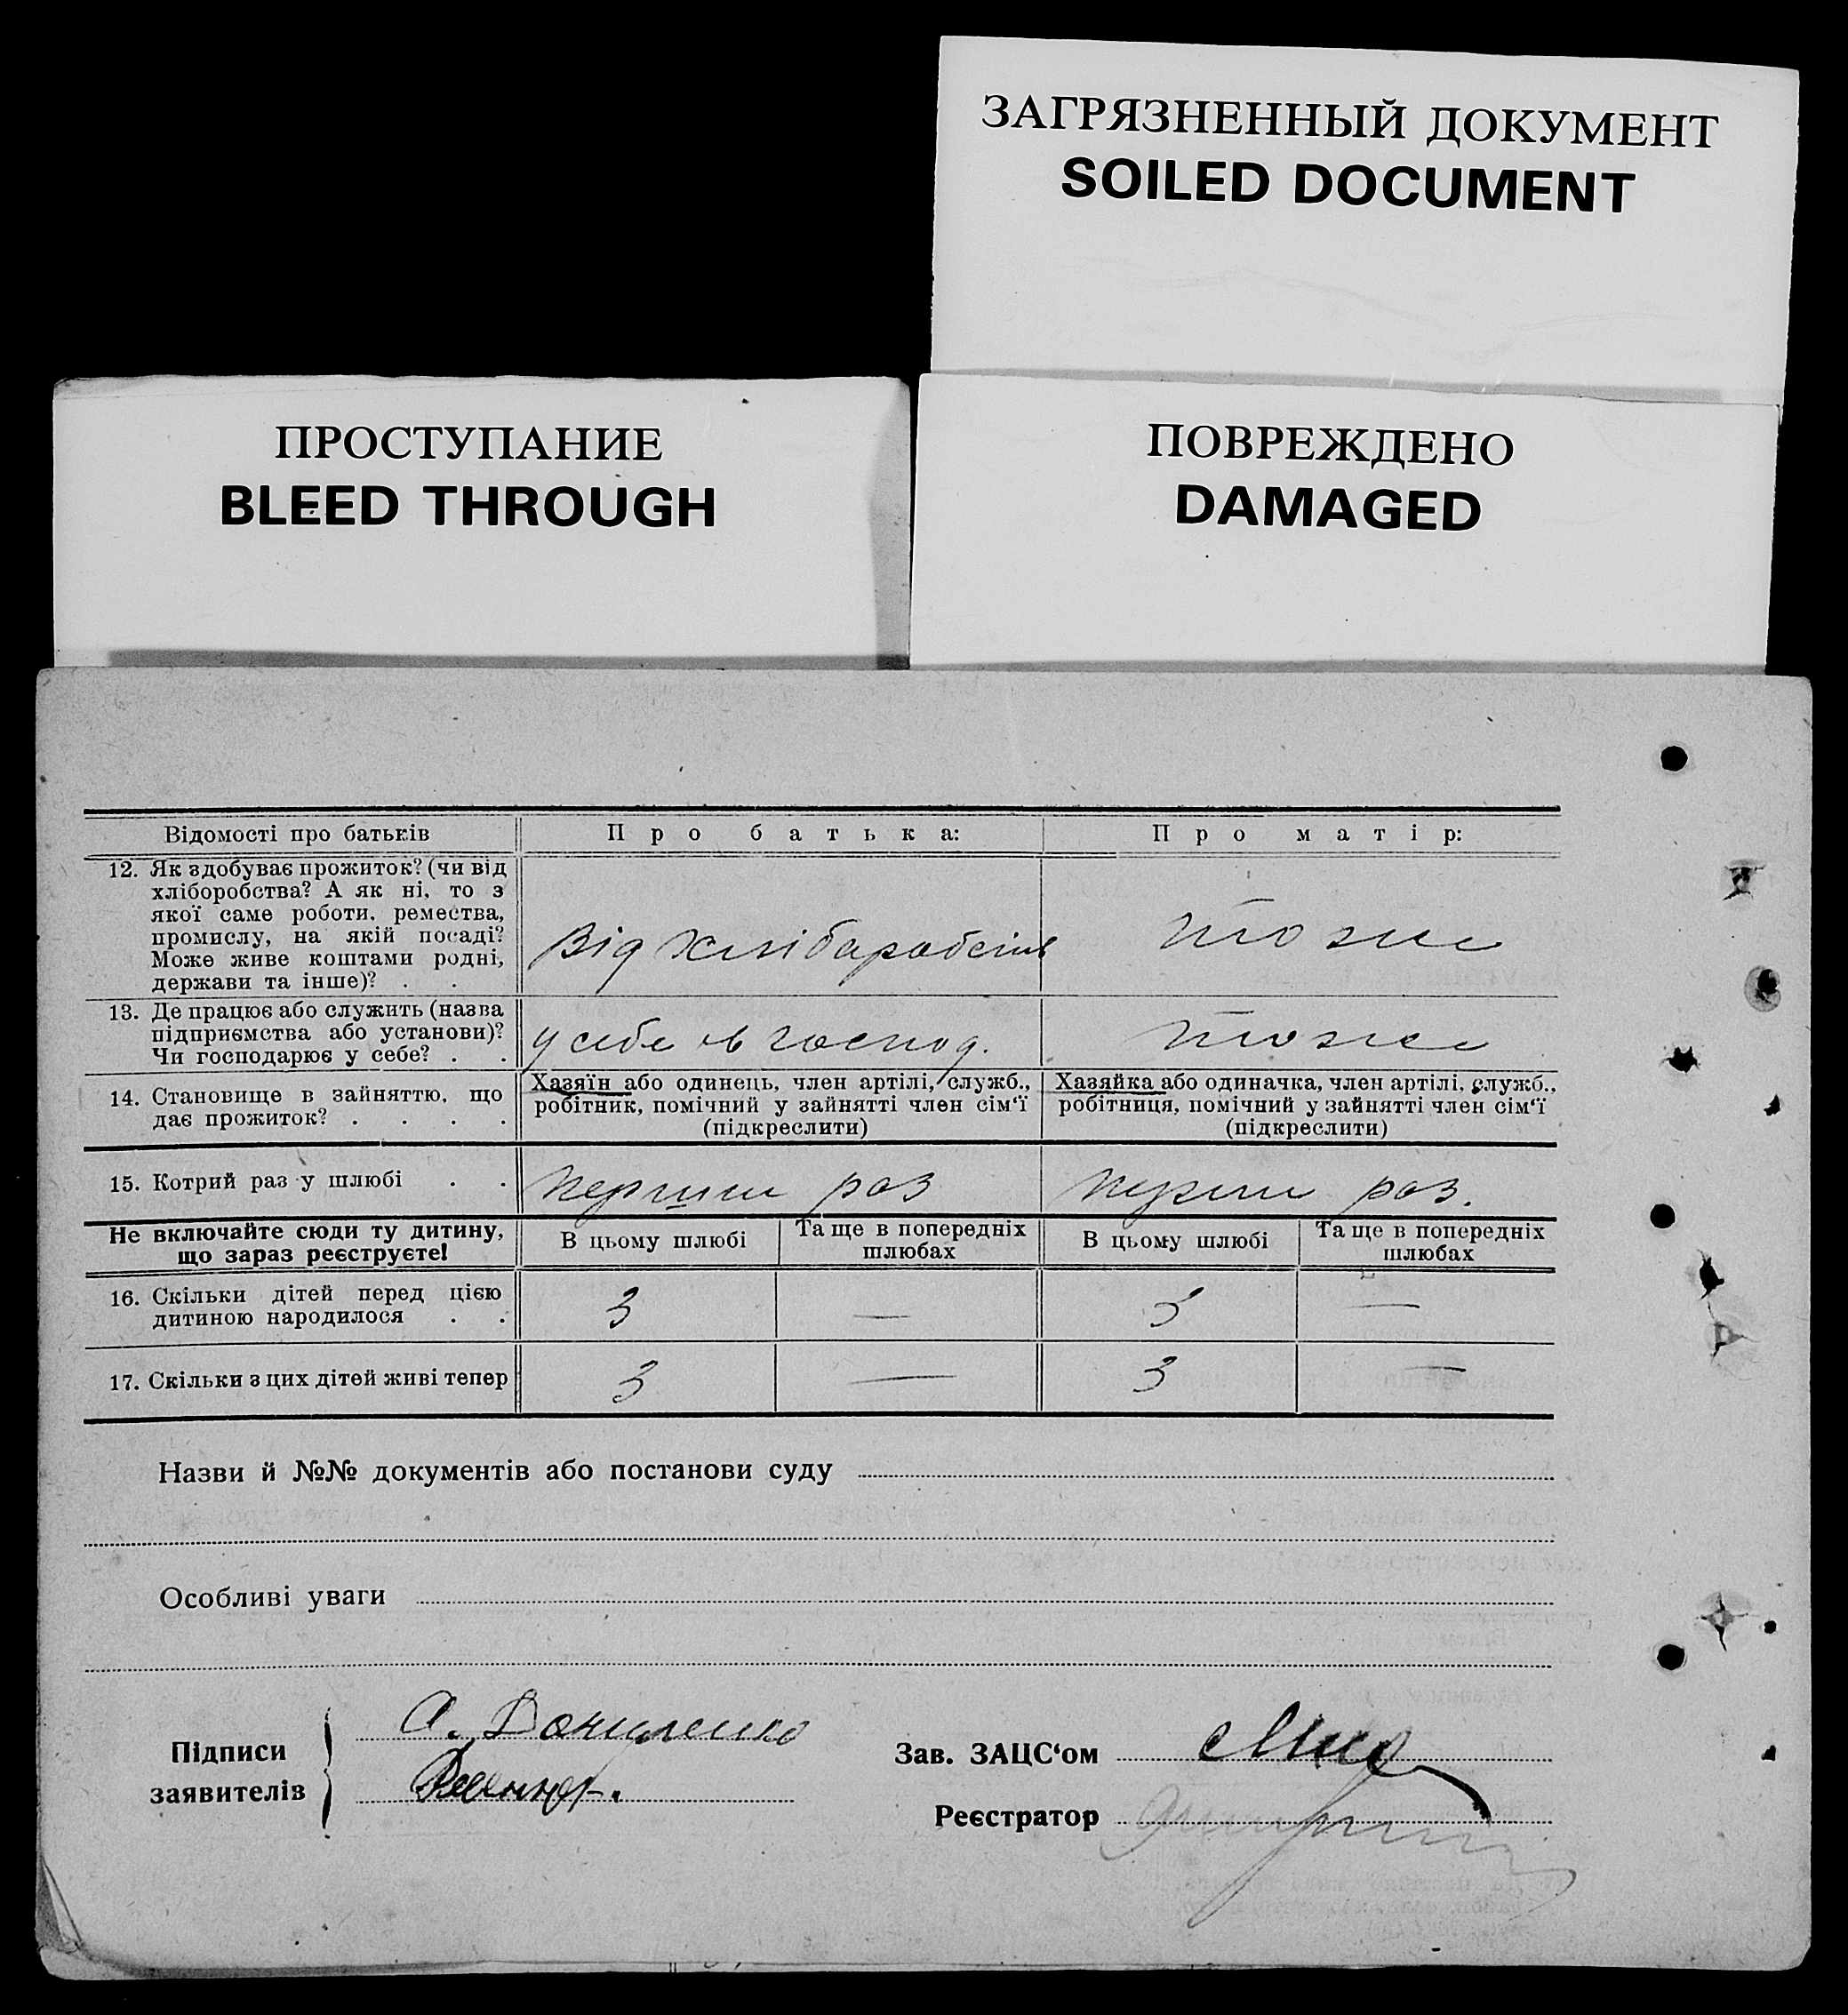 ЗАГРЯЗНЕННЫЙ ДОКУМЕНТ
SOILED DOCUMENT
ПРОСТУПАНИЕ
BLEED THROUGH
ПОВРЕЖДЕНО
DAMAGED
Відомості про батьків
Про батька:
Про матір:
12. Як здобуває прожиток? (чи від
хліборобства? А як ні, то з
якої саме роботи, ремества,
промислу, на якій посаді?
Може живе коштами родні,
держави та інше)? . .
Від
тоже
13. Де працює або служить (назва
підприємства або установи)?
Чи господарює у себе? . .
у себе в господ.
тоже
14. Становище в зайняттю, що
дає прожиток? . . . .
Хазяїн або одинець, член артілі, служб.,
робітник, помічний у зайнятті член сім‘ї
(підкреслити)
Хазяйка або одиначка, член артілі, служб.,
робітниця, помічний у зайнятті член сім‘ї
(підкреслити)
15. Котрий раз у шлюбі . .
раз
раз.
Не включайте сюди ту дитину,
що зараз реєструєте!
В цьому шлюбі
Та ще в попередніх
шлюбах
В цьому шлюбі
Та ще в попередніх
шлюбах
16. Скільки дітей перед цією
дитиною народилося . .
3
—
3
—
17. Скільки з цих дітей живі тепер
3
—
3
—
Назви й №№ документів або постанови суду
Особливі уваги
Підписи
заявителів
А. Даниленко
Зав. ЗАЦС‘ом
Реєстратор